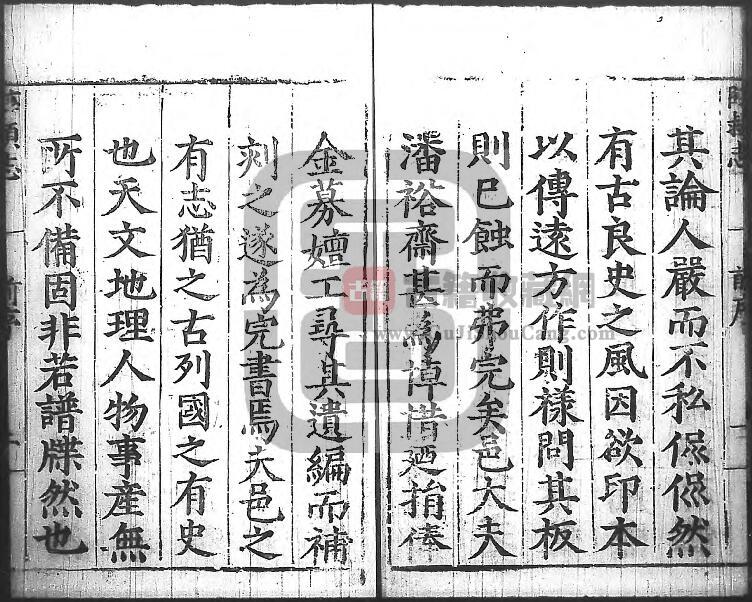 其論人嚴而不私㑋㑋然
有古良史之風因欲印本
以傳遠方作則禄問其板
則已蝕而弗完矣邑大夫
潘裕齋甚為悼惜廼捐俸
金募嬗工尋其遺編而補
刻之遂為完書焉夫邑之
有志猶之古列國之有史
也天文地理人物事產無
所不備固非若譜牒然也
古籍收藏網